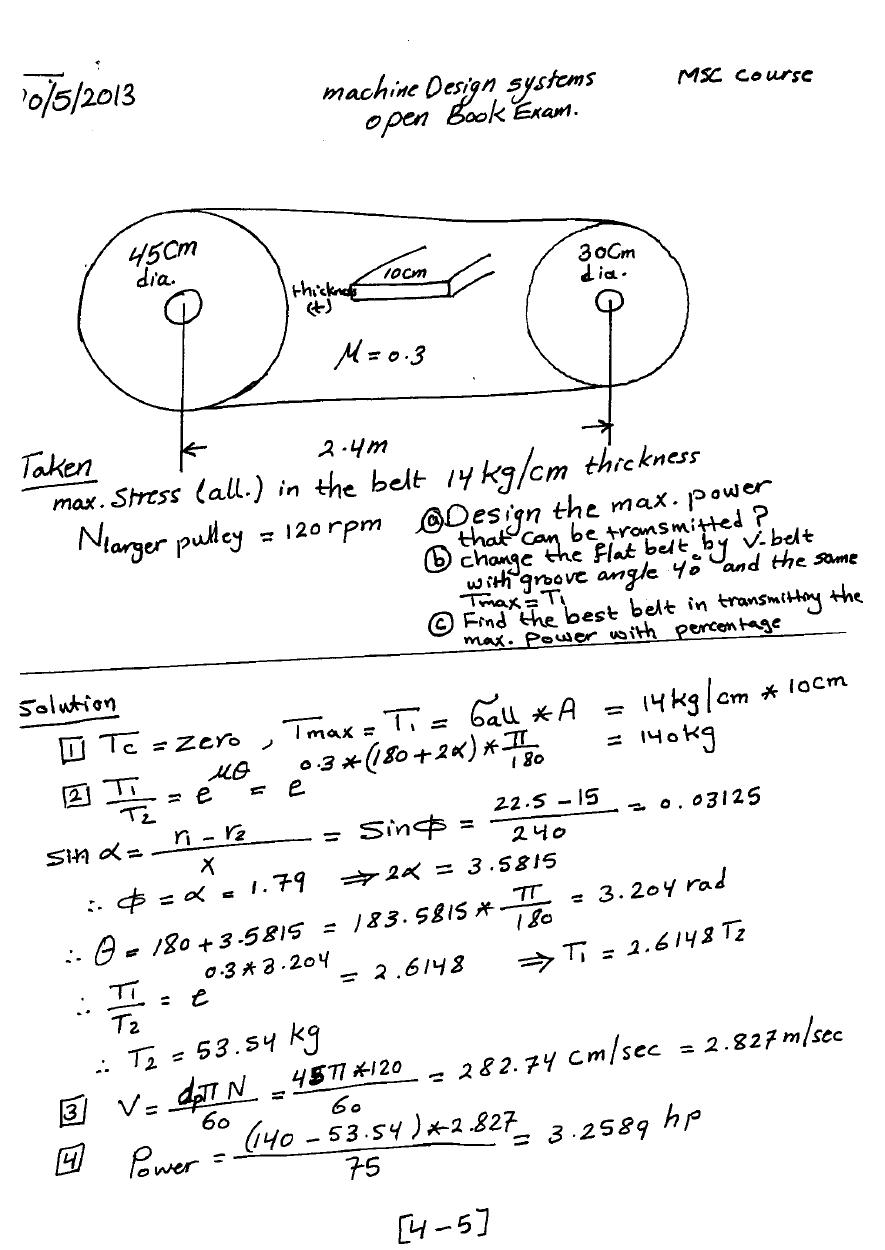 10/5/2013
machine Design systems
MSC course
open Book Exam.
45cm
dia.
30cm
dia.
10cm
thickness
(t)
M = 0.3
2.4m
Taken
max. stress (all.) in the belt 14 kg/cm thickness
N larger pulley = 120 rpm
ⓐ Design the max. power
that can be transmitted ?
ⓑ change the flat belt by V-belt
with groove angle 40° and the same
Tmax = T1
ⓒ Find the best belt in transmitting the
max. power with percentage
Solution
[1] Tc = zero , Tmax = T1 = σall * A = 14 kg/cm * 10cm
= 140 kg
[2] T1/T2 = e^μθ = e^0.3*(180+2α)*π/180
sin α = (r1 - r2)/x = sin ϕ = (22.5 - 15)/240 = 0.03125
∴ ϕ = α = 1.79 ⇒ 2α = 3.5815
∴ θ = 180 + 3.5815 = 183.5815 * π/180 = 3.204 rad
∴ T1/T2 = e^0.3*3.204 = 2.6148 ⇒ T1 = 2.6148 T2
∴ T2 = 53.54 kg
[3] V = dpπN/60 = 45π*120/60 = 282.74 cm/sec = 2.827 m/sec
[4] Power = (140 - 53.54)*2.827/75 = 3.2589 hp
[4-5]